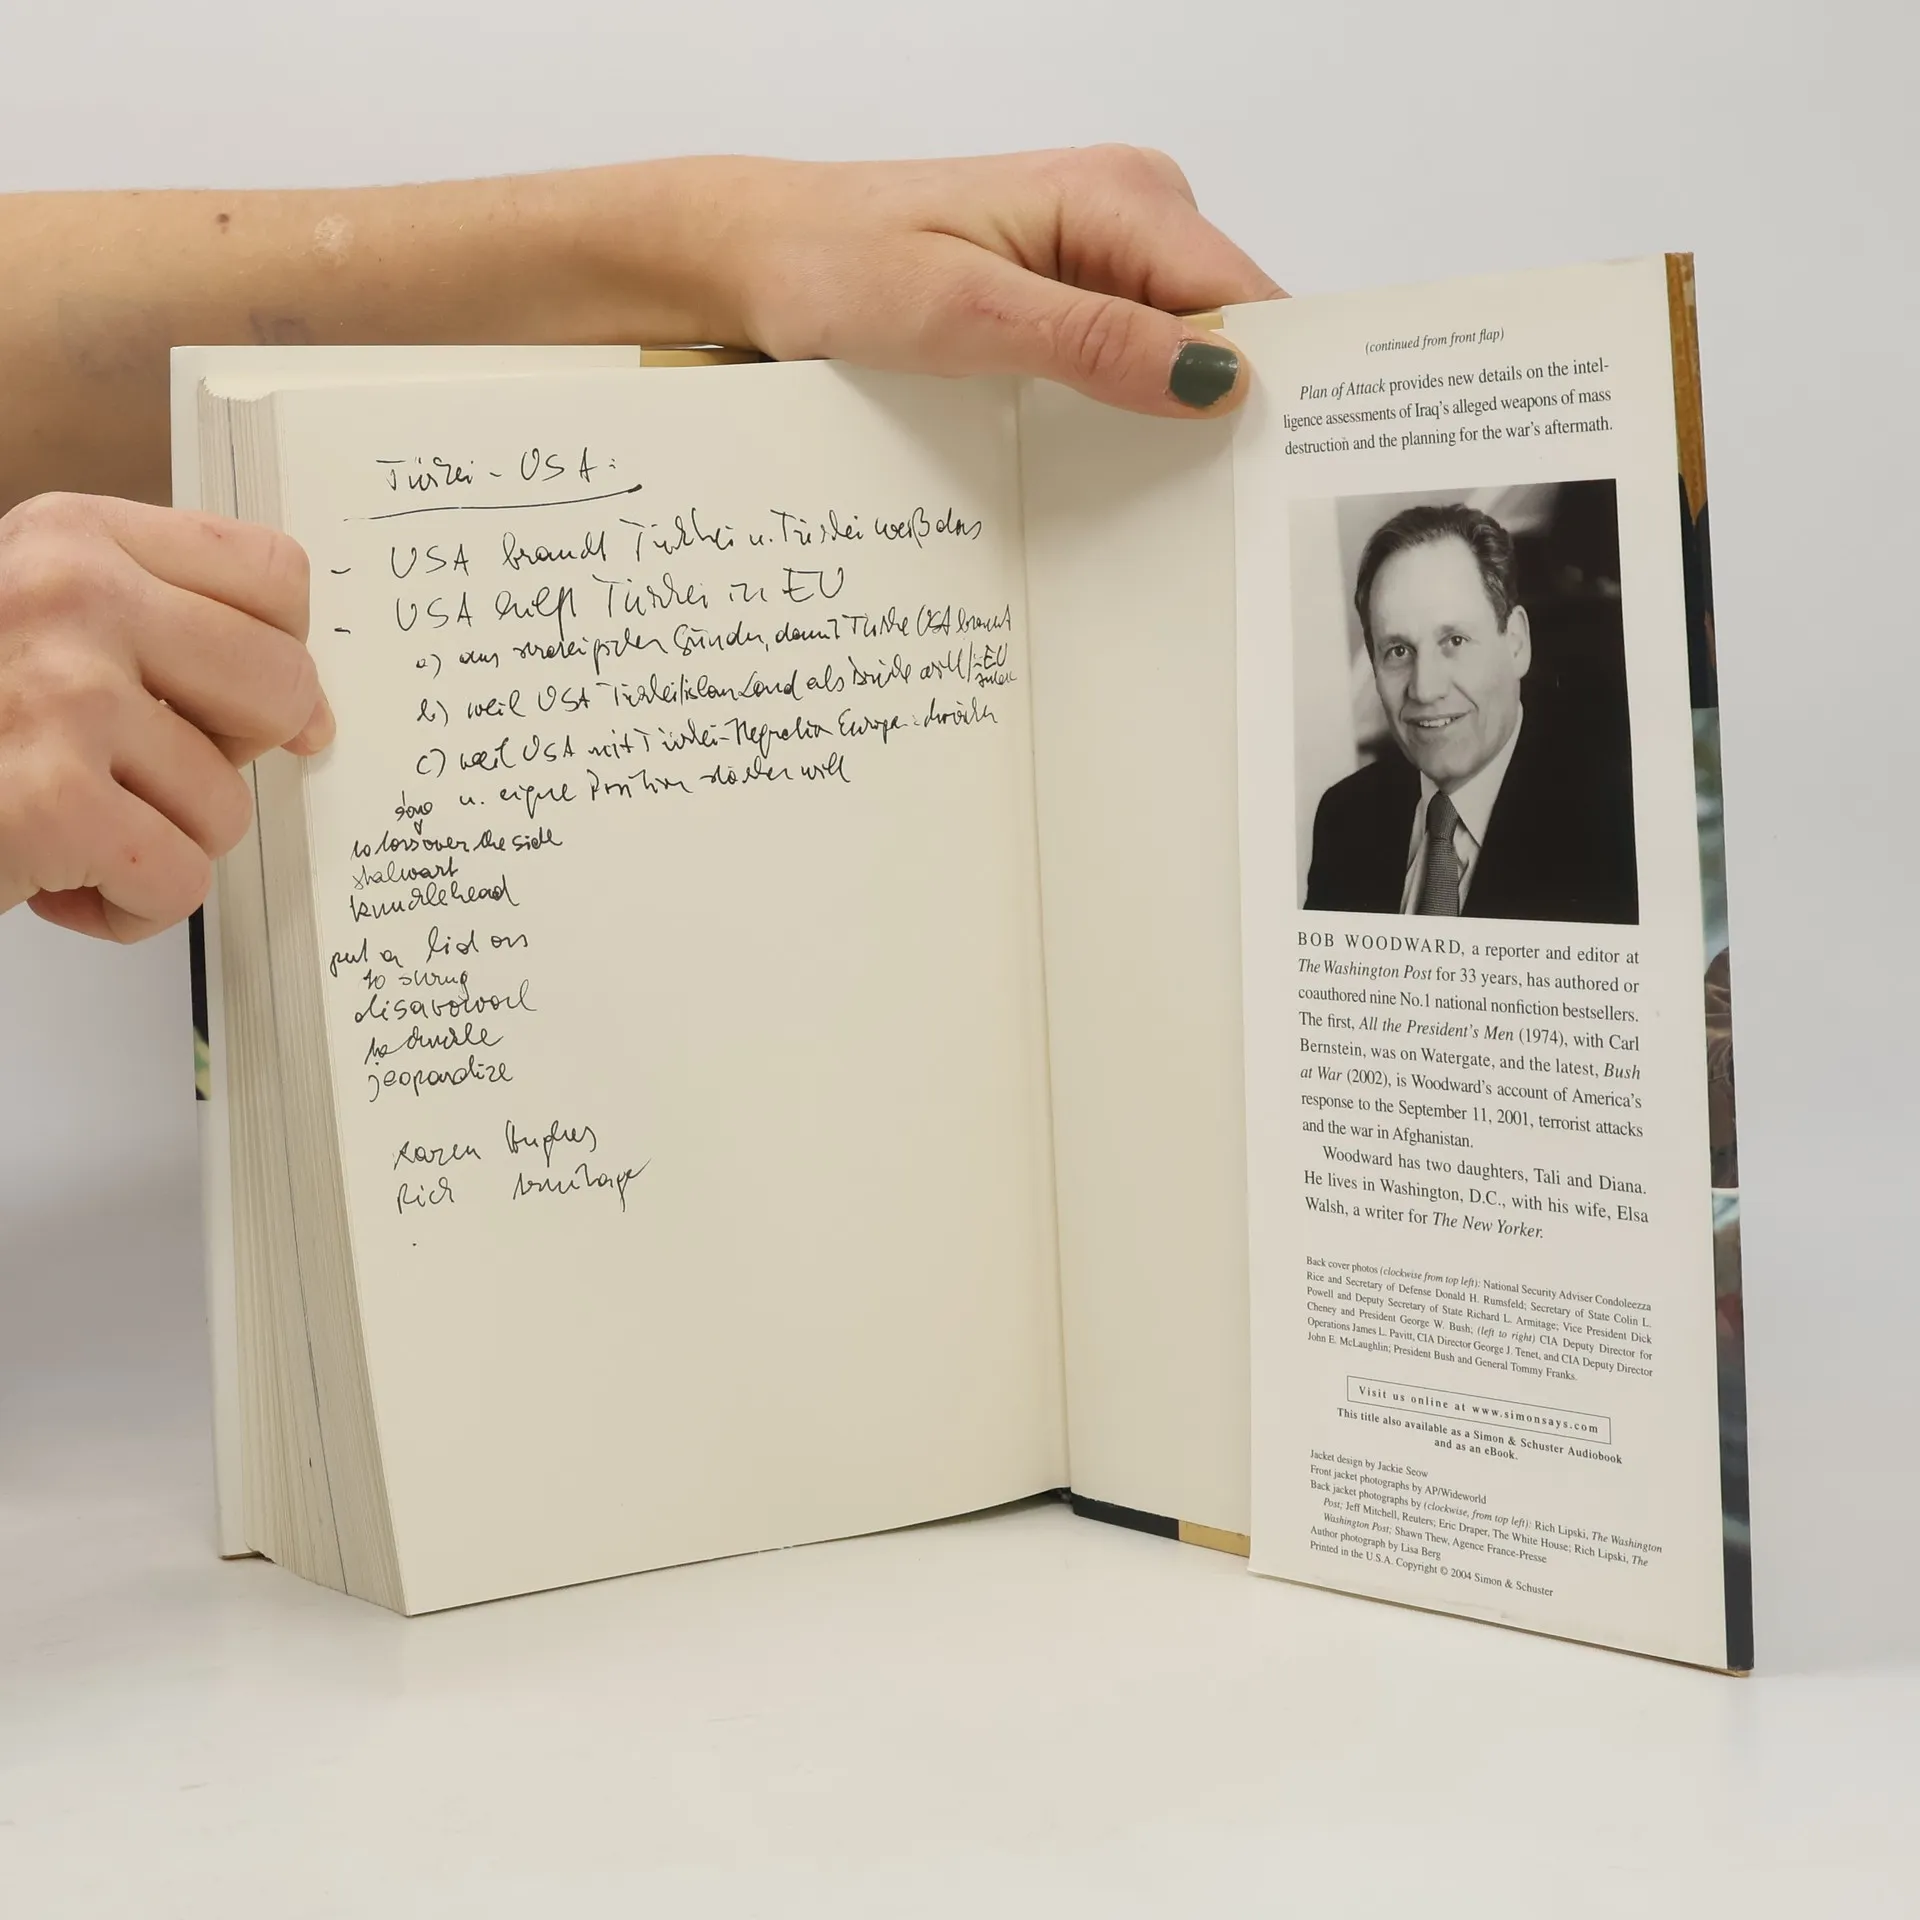 Türkei - USA:
- USA braucht Türkei u. Türkei weiß das
- USA hilft Türkei in EU
a) aus strategischen Gründen, damit Türkei USA braucht
b) weil USA Türkei/islam Land als Brücke will/in EU
c) weil USA mit Türkei-Integration Europa schwächen
u. eigene Position stärken will
to toss over the side
stalwart
knucklehead
put a lid on
to shrug
disavowed
to chuckle
jeopardize
Karen Hughes
Rich Armitage
(continued from front flap)
Plan of Attack provides new details on the intel-
ligence assessments of Iraq's alleged weapons of mass
destruction and the planning for the war's aftermath.
BOB WOODWARD, a reporter and editor at
The Washington Post for 33 years, has authored or
coauthored nine No.1 national nonfiction bestsellers.
The first, All the President's Men (1974), with Carl
Bernstein, was on Watergate, and the latest, Bush
at War (2002), is Woodward's account of America's
response to the September 11, 2001, terrorist attacks
and the war in Afghanistan.
Woodward has two daughters, Tali and Diana.
He lives in Washington, D.C., with his wife, Elsa
Walsh, a writer for The New Yorker.
Back cover photos (clockwise from top left): National Security Adviser Condoleezza
Rice and Secretary of Defense Donald H. Rumsfeld; Secretary of State Colin L.
Powell and Deputy Secretary of State Richard L. Armitage; Vice President Dick
Cheney and President George W. Bush; (left to right) CIA Deputy Director for
Operations James L. Pavitt, CIA Director George J. Tenet, and CIA Deputy Director
John E. McLaughlin; President Bush and General Tommy Franks.
Visit us online at www.simonsays.com
This title also available as a Simon & Schuster Audiobook
and as an eBook.
Jacket design by Jackie Seow
Front jacket photographs by AP/Wideworld
Back jacket photographs by (clockwise, from top left): Rich Lipski, The Washington
Post; Jeff Mitchell, Reuters; Eric Draper, The White House; Rich Lipski, The
Washington Post; Shawn Thew, Agence France-Presse
Author photograph by Lisa Berg
Printed in the U.S.A. Copyright © 2004 Simon & Schuster